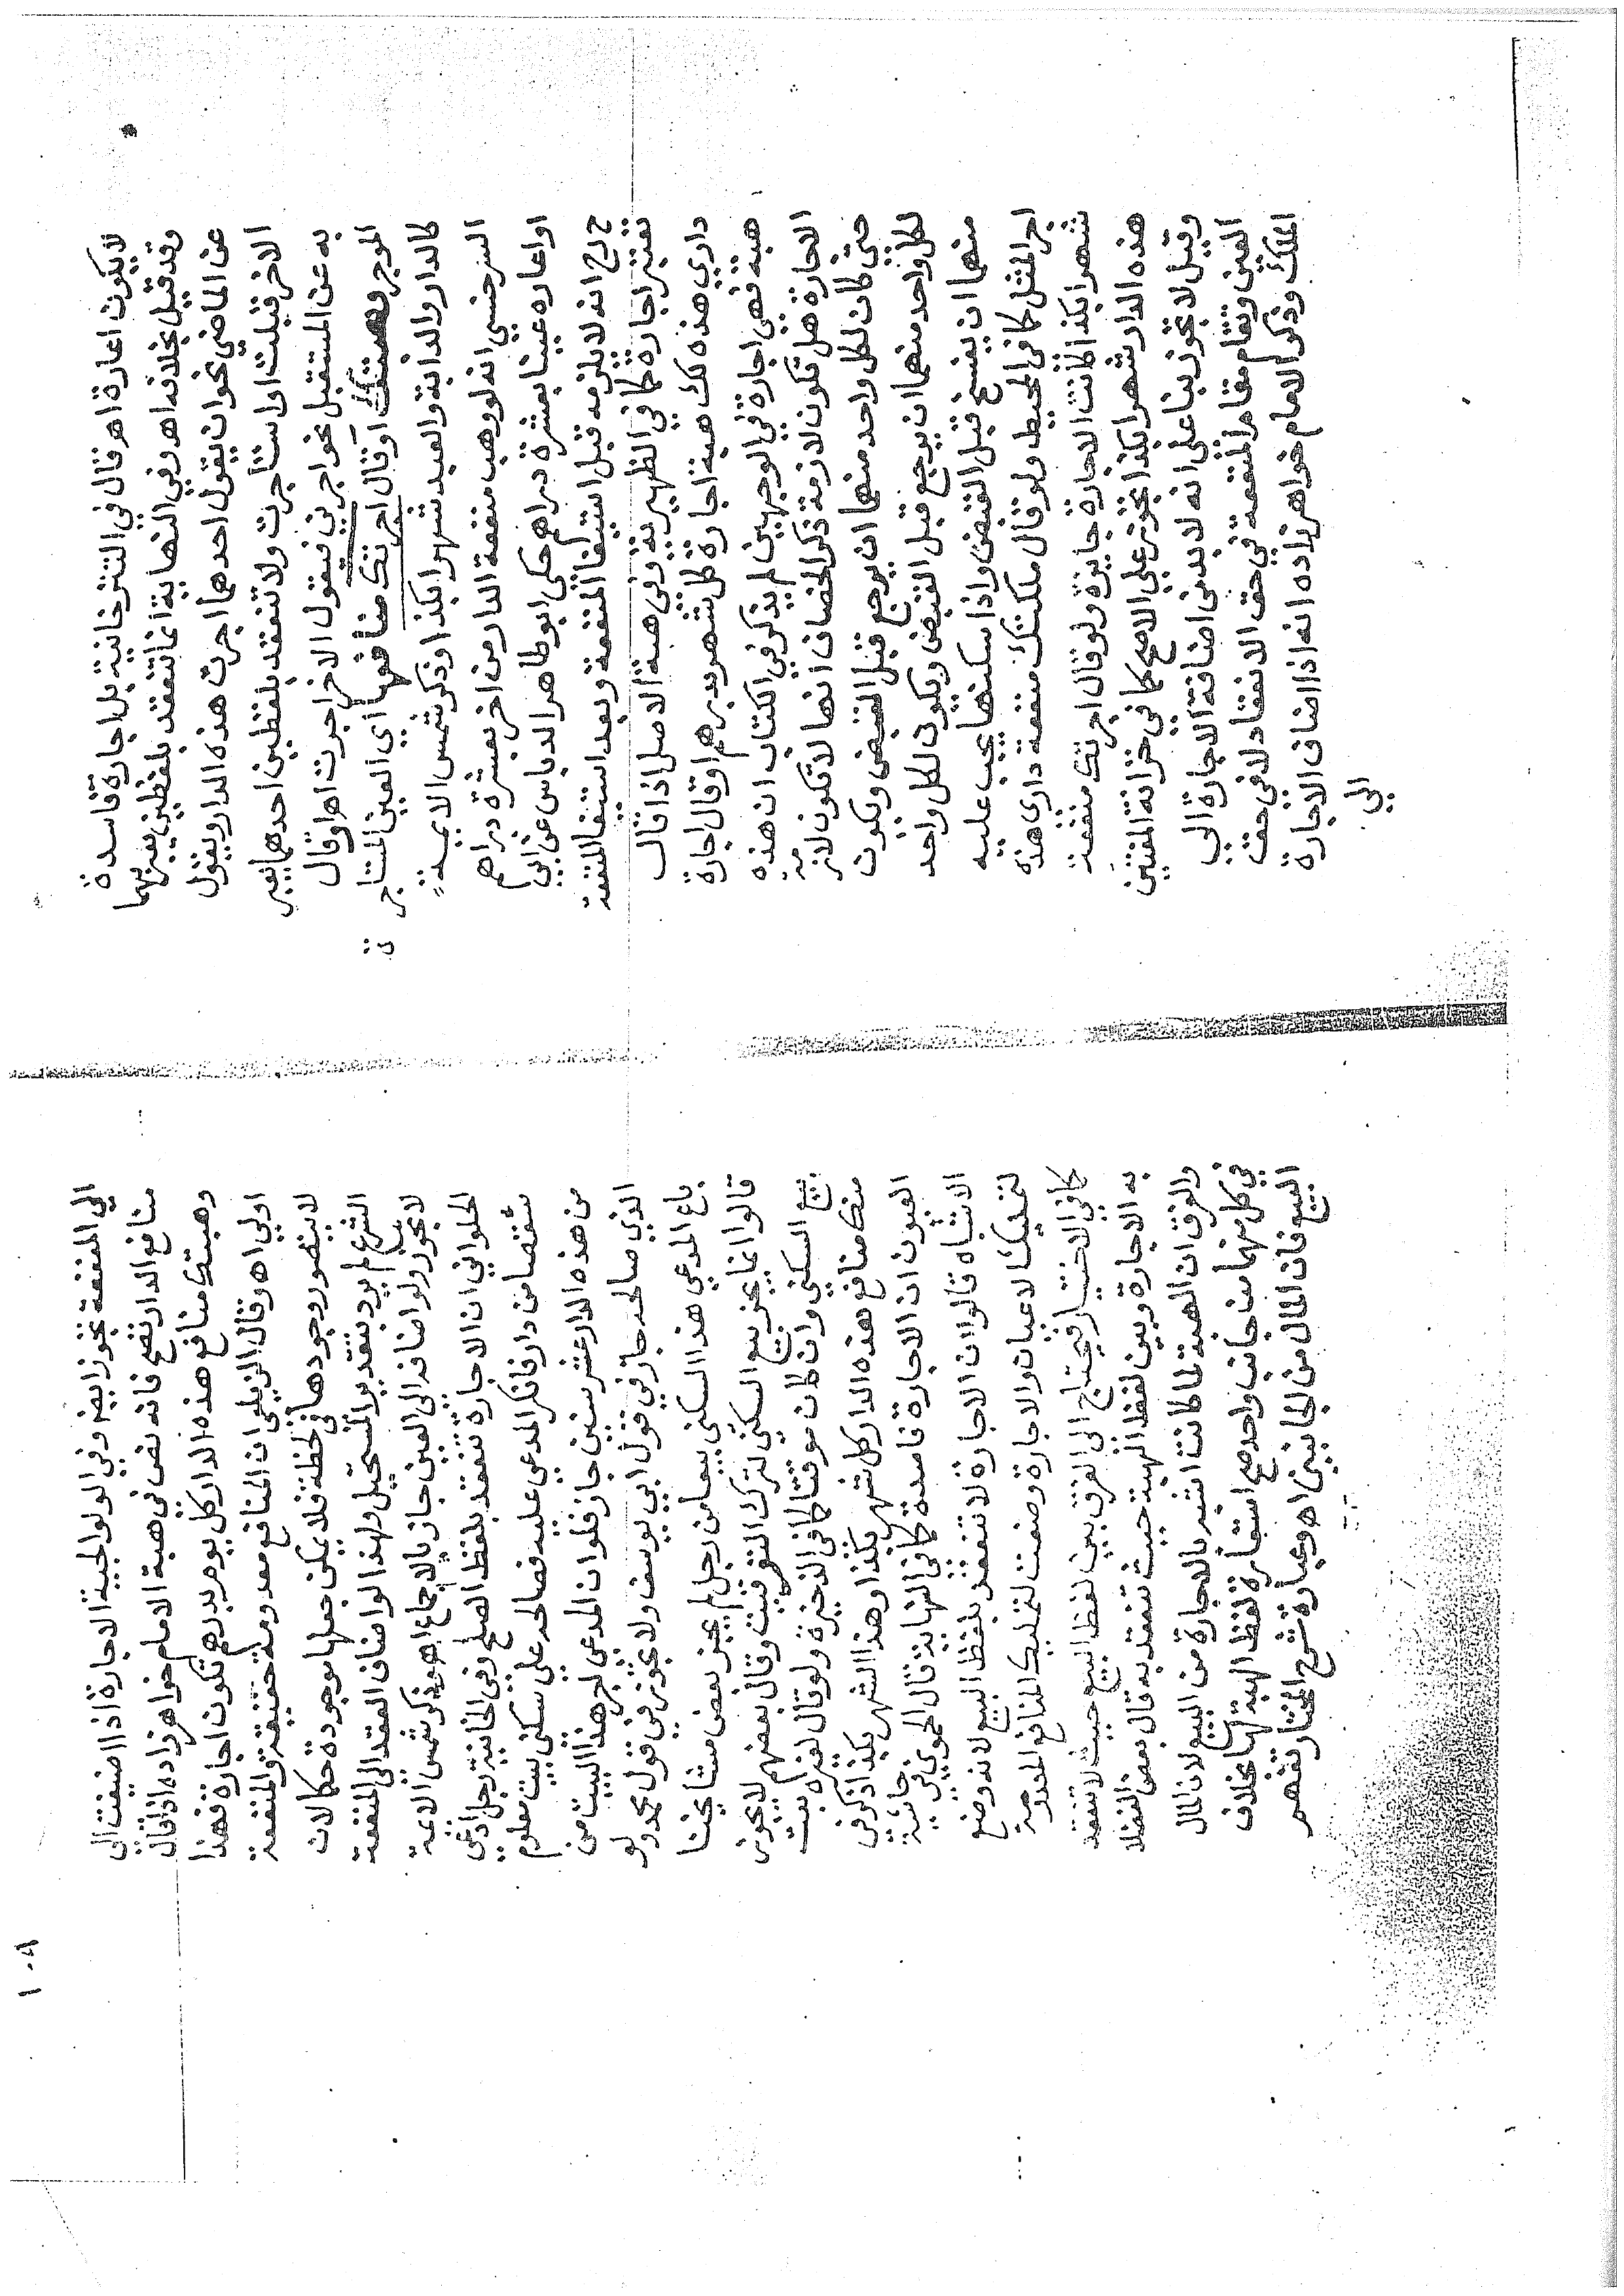 لا يكون اعارة اهـ وقال في التترخانية بل اجارة فاسدة
وقد قيل بخلافه اهـ وفي النهاية انما تنعقد بلفظين يعبر بهما
عن الماضي نحو ان يقول احدهما اجرت هذه الدار ويقول
الاخر قبلت او استأجرت ولا تنعقد بلفظين احدهما يعبر
به عن المستقبل نحو اجرني فيقول الاخر اجرت اهـ او قال
الموجر وهبتك او قال اجرتك منافعها اي العين المستاجر
كالدار والدابة والعبد شهرا بكذا وذكر شمس الايمة
السرخسي انه لو وهب منفعة الدار من اخر بعشرة دراهم
او اعاره عينا بعشرة دراهم حكى ابو طاهر الدباس عن ابي
ح رح انه لا يلزمه قبل استيفا المنفعة وبعد استيفا المنفعة
تعتبر اجارة كما في الظهيرية وفي هبة الاصل اذا قال
داري هذه لك هبة اجارة كل شهر بدرهم او قال اجارة
هبة فهي اجارة في الوجهين لم يذكر في الكتاب ان هذه
الاجارة هل تكون لازمة ذكر الخصاف انها لا تكون لازمة
حتى كان لكل واحد منهما ان يرجع قبل القبض ويكون
لكل واحد منهما ان يرجع قبل القبض ويكون لكل واحد
منهما ان يفسخ قبل القبض واذا سكنها يجب عليه
اجر المثل كما في المحيط ولو قال ملكتك منفعة داري هذه
شهرا بكذا كانت الاجارة جايزة ولو قال اجرتك منفعة
هذه الدار شهرا بكذا يجوز على الاصح كما في خزانة المفتين
وقيل لا تجوز بنا على انه لا بد من اضافة الاجارة الى
العين وتقام مقام المنفعة في حق الانعقاد لا في حق
الملك وذكر الامام خواهر زاده انه اذا اضاف الاجارة
الى
الى المنفعة تجوز ايضا وفي الولوالجية الاجارة اذا اضيفت الى
منافع الدار تصح فانه نص في هبة الامام خواهر زاده اذا قال
وهبتك منافع هذه الدار كل يوم بدرهم تكون اجارة فهذا
اولى اهـ وقال الزيلعي ان المنافع معدومة حقيقة والمنفعة
لا يتصور وجودها في لحظة فلا يمكن جعلها موجودة حكما لان
الشرع لم يرد بتقدير المستحيل ولهذا لو اضاف العقد الى المنفعة
لا يجوز ولو اضافه الى العين جاز بالاجماع اهـ وذكر شمس الائمة
الحلواني ان الاجارة تنعقد بلفظ الصلح وفي الخانية رجل ادعى
شقصا من دار فانكر المدعي عليه فصالحه على سكنى بيت معلوم
من هذه الدار عشر سنين جاز فلو ان المدعي اجر هذا البيت من
الذي صالحه جاز في قول ابي يوسف ولا يجوز في قول محمد ولو
باع المدعي هذا السكنى بيعا من رجل لم يجز بعض مشايخنا
قالوا انما يجز بيع السكنى لترك التوقيت وقال بعضهم لا يجوز
بيع السكنى وان كان موقتا كما في الذخيرة ولو قال لغيره بعت
منك منافع هذه الدار كل شهر بكذا وهذا الشهر بكذا ذكر في
العيون ان الاجارة فاسدة كما في النهاية قال الحموي في حاشية
الاشباه قالوا ان الاجارة لا تنعقد بلفظ البيع لانه وضع
لتمليك الاعيان والاجارة وضعت لتمليك المنافع المعدومة
كما في الاختيار فيحتاج الى الفرق بين لفظ البيع حيث لا تنعقد
به الاجارة وبين لفظ الهبة حيث تنعقد به قال بعض الفضلا
والفرق ان الهبة لما كانت اشبه بالاجارة من البيع لان المال
في كل منهما من جانب واحد صح استعارة لفظ الهبة لها بخلاف
البيع فان المال من الجانبين اهـ وعبارة شرح المختار تفهم
١٠٩